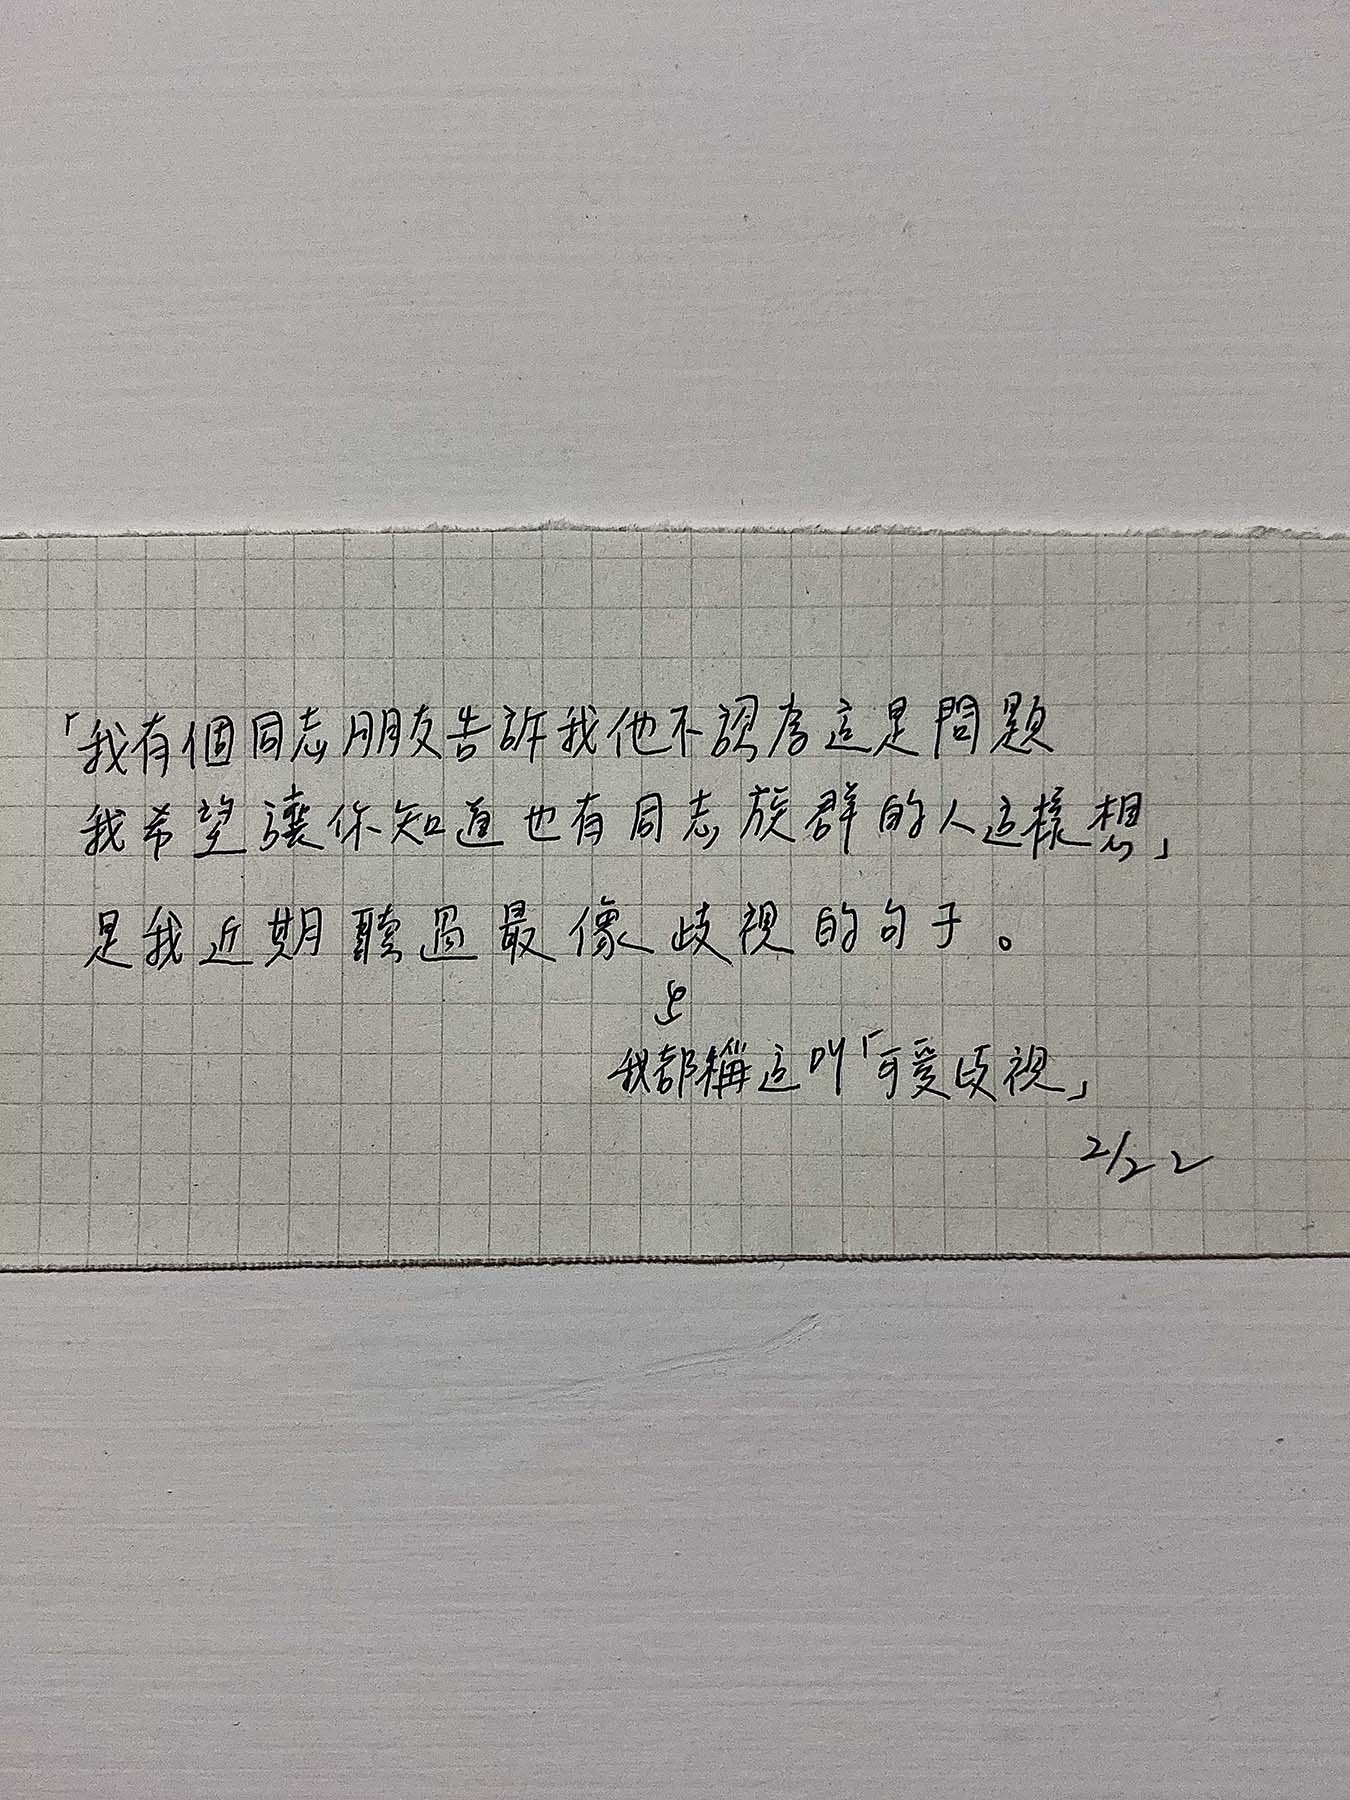 「我有個同志朋友告訴我他不認為這是問題
我希望讓你知道也有同志族群的人這樣想」
是我近期聽過最像歧視的句子。
我都稱這叫「可愛歧視」
2/22